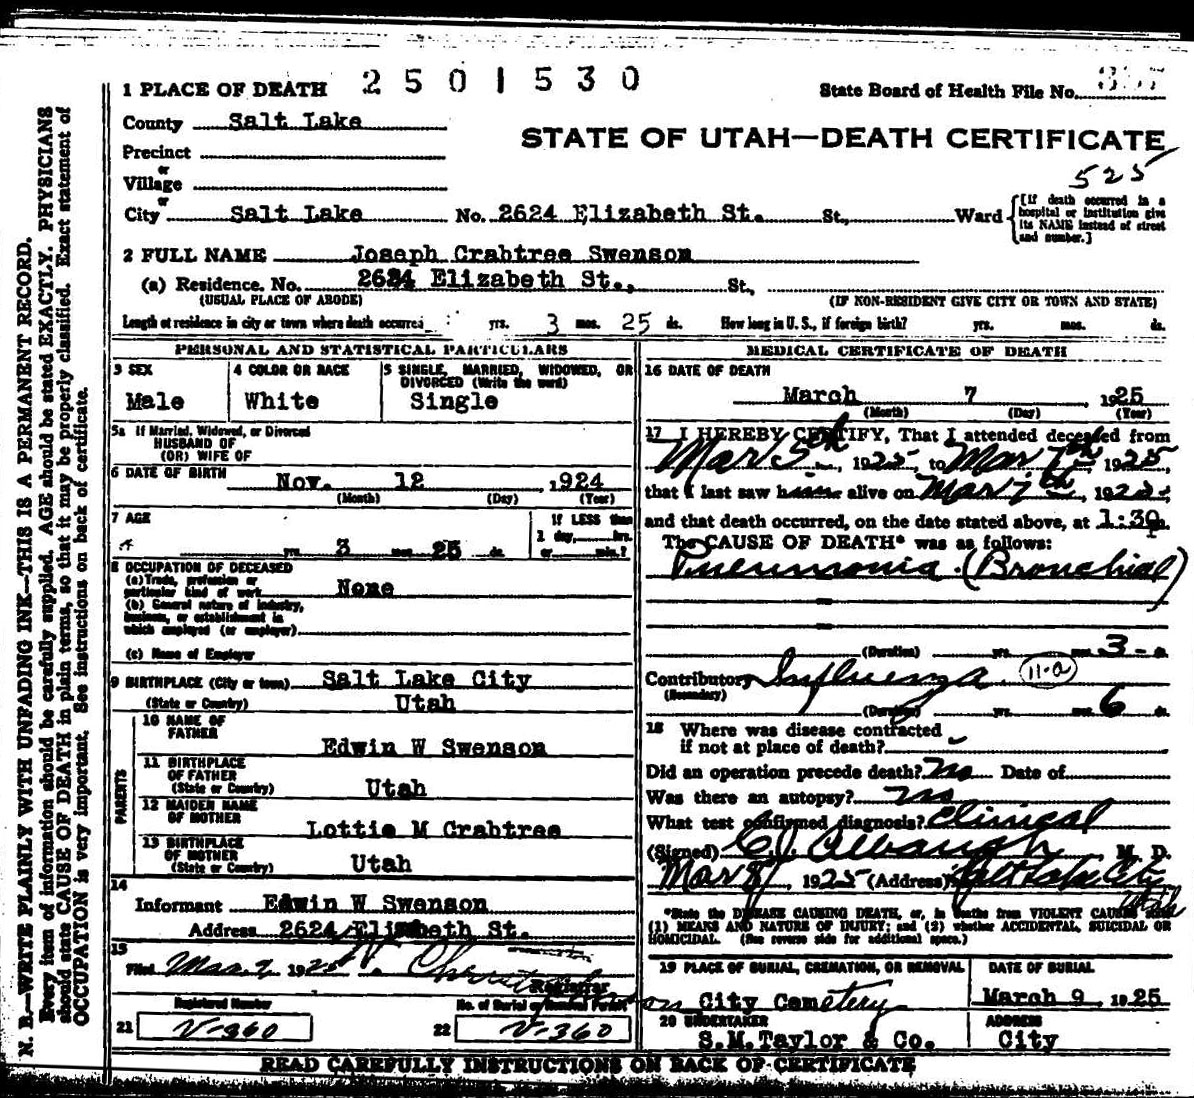 1 PLACE OF DEATH 2501530 State Board of Health File No.
County Salt Lake
STATE OF UTAH—DEATH CERTIFICATE
Precinct
or
Village
525
or
City Salt Lake No. 2624 Elizabeth St. St., Ward
[If death occurred in a
hospital or institution give
its NAME instead of street
and number.]
2 FULL NAME Joseph Crabtree Swenson
(a) Residence. No. 2624 Elizabeth St., St.,
(USUAL PLACE OF ABODE) (IF NON-RESIDENT GIVE CITY OR TOWN AND STATE)
Length of residence in city or town where death occurred yrs. 3 mos. 25 ds. How long in U. S., if foreign birth? yrs. mos. ds.
PERSONAL AND STATISTICAL PARTICULARS
3 SEX
Male
4 COLOR OR RACE
White
5 SINGLE, MARRIED, WIDOWED, OR
DIVORCED (Write the word)
Single
5a If Married, Widowed, or Divorced
HUSBAND OF
(OR) WIFE OF
6 DATE OF BIRTH Nov. 12, 1924
(Month) (Day) (Year)
7 AGE
yrs. 3 mos. 25 ds.
If LESS than
1 day, hrs.
or min.?
8 OCCUPATION OF DECEASED
(a) Trade, profession or
particular kind of work None
(b) General nature of industry,
business, or establishment in
which employed (or employer)
(c) Name of Employer
9 BIRTHPLACE (City or town) Salt Lake City
(State or Country) Utah
PARENTS
10 NAME OF
FATHER Edwin W Swenson
11 BIRTHPLACE
OF FATHER
(State or Country) Utah
12 MAIDEN NAME
OF MOTHER Lottie M Crabtree
13 BIRTHPLACE
OF MOTHER
(State or Country) Utah
14
Informant Edwin W Swenson
Address 2624 Elizabeth St.
15
Filed Mar. 9 1925
Registrar
Registered Number
21 V-360
No. of Burial or Removal Permit
22 V-360
MEDICAL CERTIFICATE OF DEATH
16 DATE OF DEATH
March 7, 1925
(Month) (Day) (Year)
17 I HEREBY CERTIFY, That I attended deceased from
Mar 5th, 1925, to Mar. 7th 1925,
that I last saw h alive on Mar 7th, 1925,
and that death occurred, on the date stated above, at 1:30 p.
The CAUSE OF DEATH* was as follows:
Pneumonia. (Bronchial)
(Duration) yrs. mos. 3 ds.
Contributory Influenza 11-a
(Secondary)
(Duration) yrs. mos. 6 ds.
18 Where was disease contracted
if not at place of death?
Did an operation precede death? No Date of
Was there an autopsy? No
What test confirmed diagnosis? Clinical
(Signed) C J. Albaugh M. D.
Mar 8, 1925 (Address) Salt Lake City
Utah
*State the DISEASE CAUSING DEATH, or, in deaths from VIOLENT CAUSES state
(1) MEANS AND NATURE OF INJURY; and (2) whether ACCIDENTAL, SUICIDAL OR
HOMICIDAL. (See reverse side for additional space.)
19 PLACE OF BURIAL, CREMATION, OR REMOVAL
City Cemetery
DATE OF BURIAL
March 9, 1925
20 UNDERTAKER
S.M.Taylor & Co.
ADDRESS
City
READ CAREFULLY INSTRUCTIONS ON BACK OF CERTIFICATE
N. B.—WRITE PLAINLY WITH UNFADING INK—THIS IS A PERMANENT RECORD.
Every item of information should be carefully supplied. AGE should be stated EXACTLY. PHYSICIANS
should state CAUSE OF DEATH in plain terms, so that it may be properly classified. Exact statement of
OCCUPATION is very important. See instructions on back of certificate.